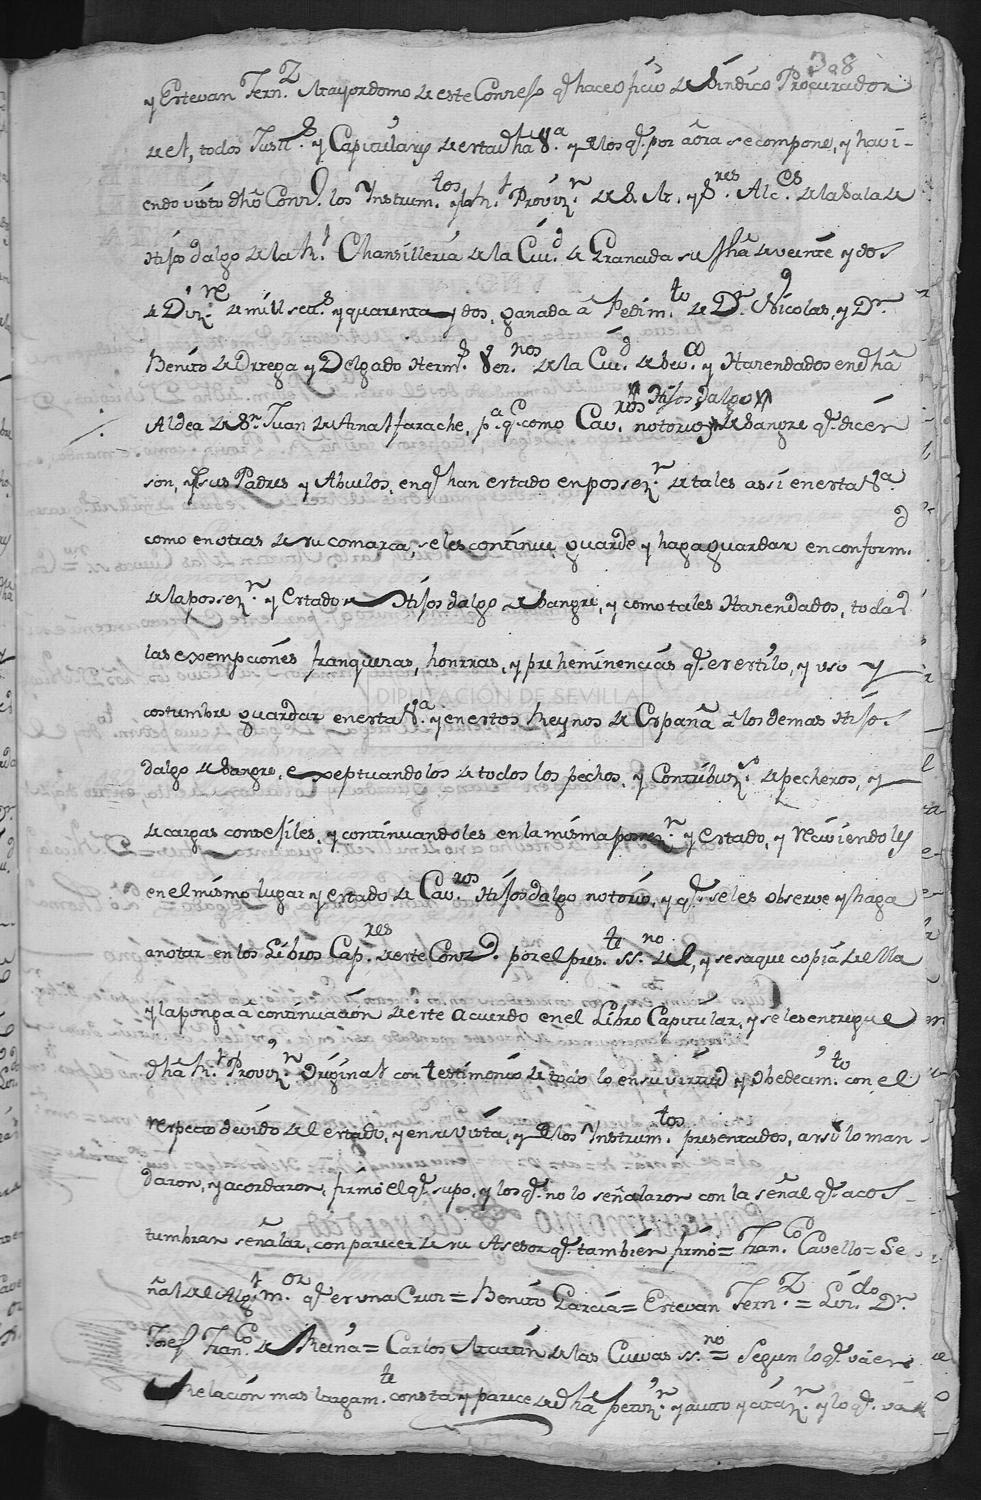 398
y Estevan Fern.z Mayordomo de este Consejo q.e hace oficio de Síndico Procurador
de el, todos Just.s y Capitulares de esta dha V.a y de los q.e por aóra se compone, y havi-
endo visto dho Conz.o los Instrum.tos y la R.l Proviz.n de S. M. y S.res Alc.es de la Sala de
Hijos dalgo de la R.l Chansilleria de la Ciu.d de Granada su fha de veinte y dos
de Diz.re de mill sett.s y quarenta y dos, ganada a Pedim.to de D.n Nicolas, y D.n
Benito de Ortega y Delgado Herm.s Vez.nos de la Ciu.d de Sev.a y Hazendados en dha
Aldea de S.n Juan de Aznalfarache, p.a q.e como Cav.ros Hijos dalgo
notorios de Sangre q.e dicen
son, y sus Padres y Abuelos, en q.e han estado en possez.n de tales assi en esta V.a
como en otras de su comarca, se les continue, guarde y haga guardar en conform.d
de la possez.n y estado de Hijos dalgo de Sangre, y como tales Hazendados, todas
las exempciones franquezas, honrras, y preheminencias q.e es estilo, y uso y
costumbre guardar en esta V.a y en estos Reynos de España a los demas Hijos
dalgo de Sangre, exeptuandolos de todos los pechos, y Contribuz.s de pecheros, y
de cargas consejiles, y continuandoles en la misma posez.n y estado, y reciviendoles
en el mismo lugar y estado de Cav.ros Hijos dalgo notorio, y q.e se les observe y haga
anotar en los Libros Cap.res de este Conz.o por el pres.te ss.no de el, y se saque copia de ella
y la ponga a continuación de este Acuerdo en el Libro Capitular, y se les entregue
dha R.l Proviz.n Original con testimonio de todo lo en su virtud y Obedecim.to con el
respecto devido de el estado, y en su vista, y de los Instrum.tos presentados, assi lo man-
daron, y acordaron, firmó el q.e supo, y los q.e no lo señalaron con la señal q.e acos-
tumbran señalar, con parecer de su Asesor q.e tambien firmó = Fran.co Cavello = Se-
ñal de el Alg.l m.or q.e es una Cruz = Benito Garcia = Estevan Fern.z = Liz.do D.n
Josef Fran.co de Reina = Carlos Martin de las Cuevas ss.no = Segun lo q.e va en
Relación mas largam.te consta y parece de dha petiz.n y auto y citaz.n y lo q.e va
DIPUTACIÓN DE SEVILLA